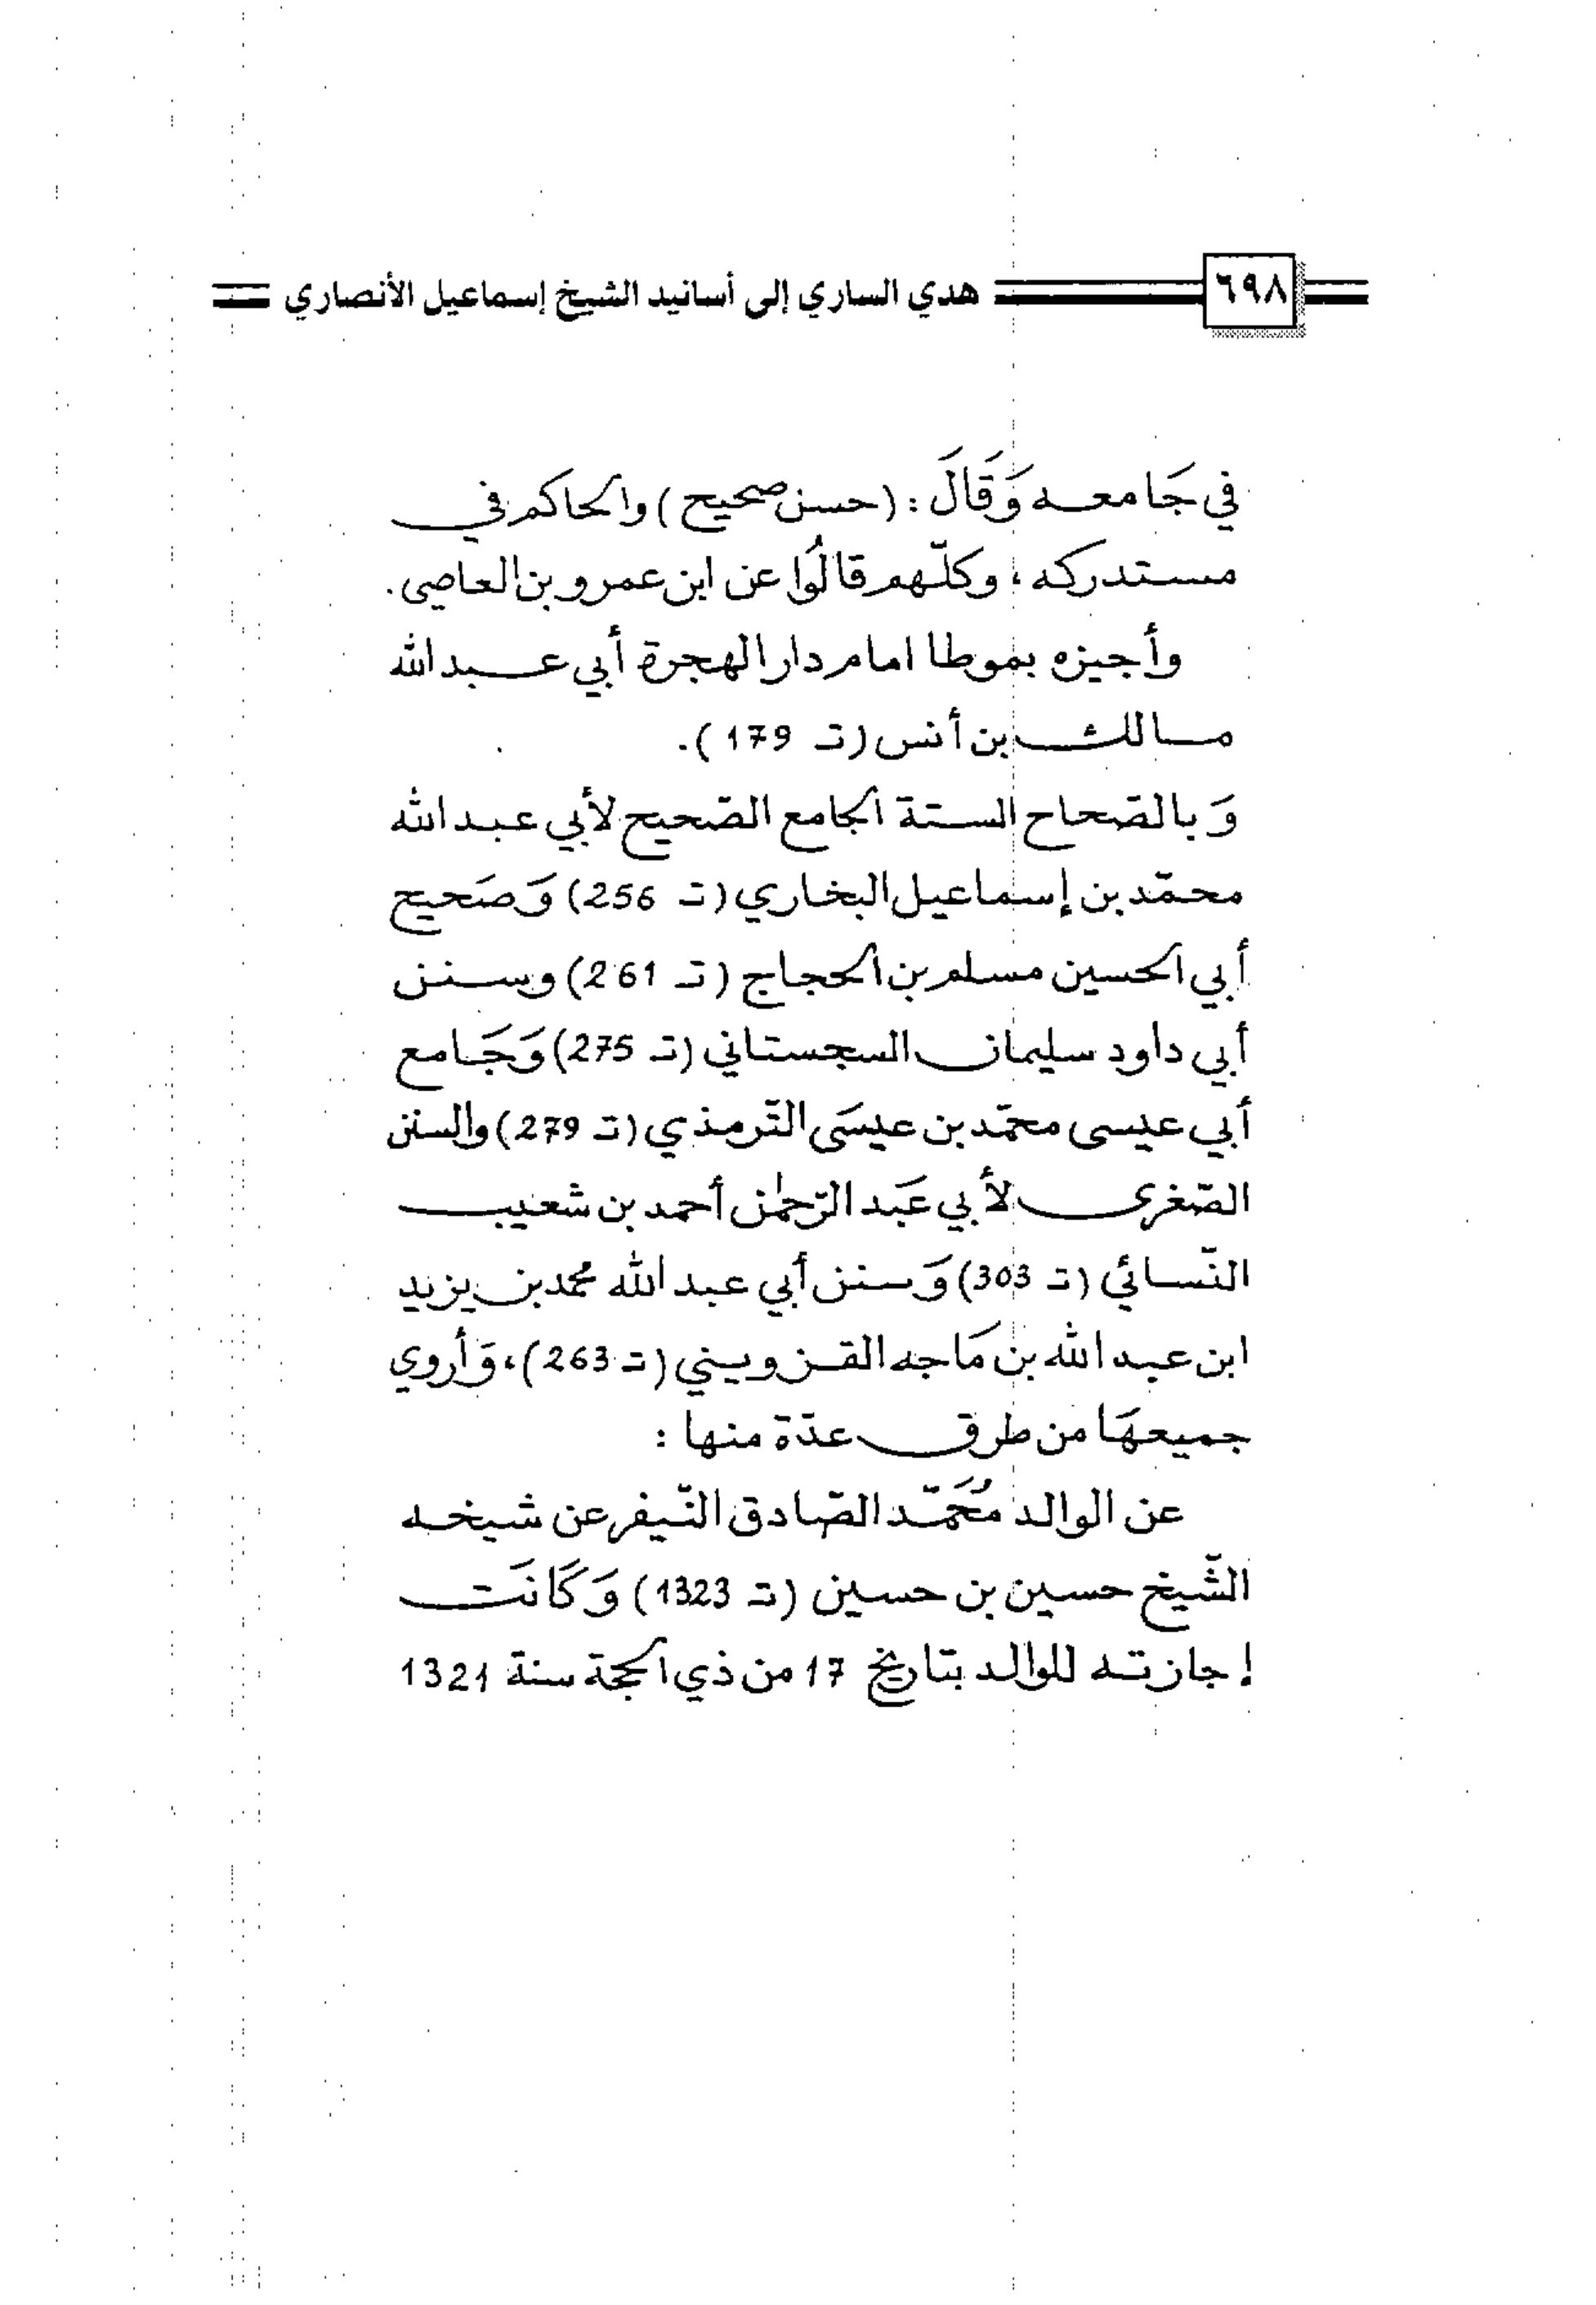 ٦٩٨ هدي الساري إلى أسانيد الشيخ إسماعيل الأنصاري
في جَامعه وَقَالَ : (حسن صحيح) والحاكم في
مستدركه ، وكلّهم قالُوا عن ابن عمرو بن العاصي .
وأجيزه بموطا امام دار الهجرة أبي عبد الله
مالك بن أنس (تـ 179).
وَبالصّحاح الستة الجامع الصّحيح لأبي عبد الله
محمّد بن إسماعيل البخاري (تـ 256) وَصَحيح
أبي الحسين مسلم بن الحجاج (تـ 261) وسنن
أبي داود سليمان السجستاني (تـ 275) وَجَامع
أبي عيسى محمّد بن عيسَى التّرمذي (تـ 279) والسنن
الصّغرى لأبي عَبد الرّحمٰن أحمد بن شعيب
النّسائي (تـ 303) وَسنن أبي عبد الله محمد بن يزيد
ابن عبد الله بن مَاجه القزويني (تـ 263)، وَأروي
جميعهَا من طرق عدّة منها :
عن الوالد مُحَمّد الصّادق النّيفر عن شيخه
الشّيخ حسين بن حسين (تـ 1323) وَكَانَت
إجازته للوالد بتاريخ 17 من ذي الحجة سنة 1321